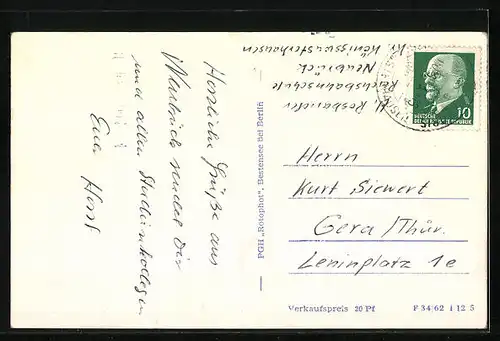 Herzliche Grüße aus
sendet Dir
und allen Studienkollegen
Euer Horst
PGH „Rotophot“, Bestensee bei Berlin
H.
Reichsbahnschule
Neubrück
Kr. Königswusterhausen
10
DEUTSCHE
DEMOKRATISCHE REPUBLIK
Herrn
Kurt Siewert
Gera/Thür.
Leninplatz 1e
Verkaufspreis 20 Pf
F 34/62 1 12 5